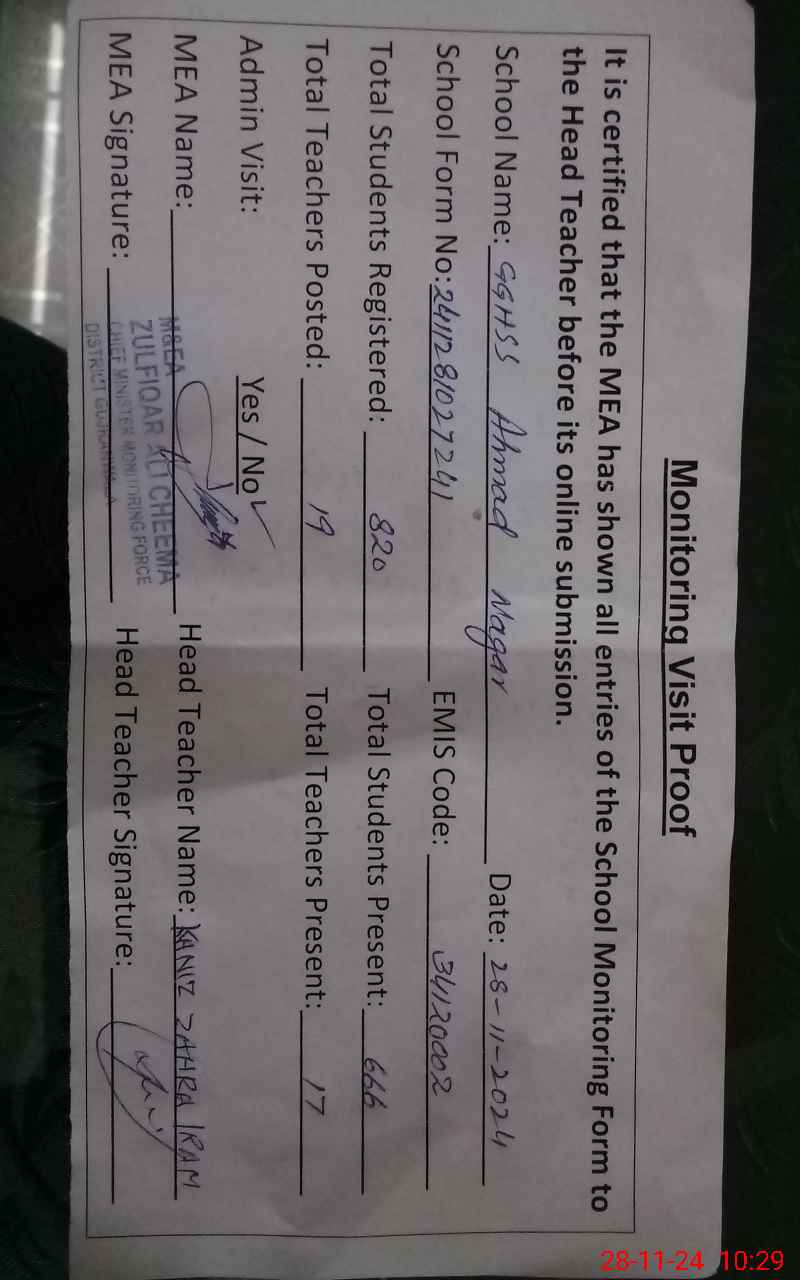 Monitoring Visit Proof
It is certified that the MEA has shown all entries of the School Monitoring Form to
the Head Teacher before its online submission.
School Name: GGHSS Ahmad Nagar Date: 28-11-2024
School Form No: 2411281027241 EMIS Code: 34120002
Total Students Registered: 820 Total Students Present: 666
Total Teachers Posted: 19 Total Teachers Present: 17
Admin Visit: Yes / No ✓
MEA Name: Head Teacher Name: KANIZ ZAHRA IRAM
MEA Signature: Head Teacher Signature:
M&EA
ZULFIQAR ALI CHEEMA
CHIEF MINISTER MONITORING FORCE
DISTRICT GUJRANWALA
28-11-24 10:29